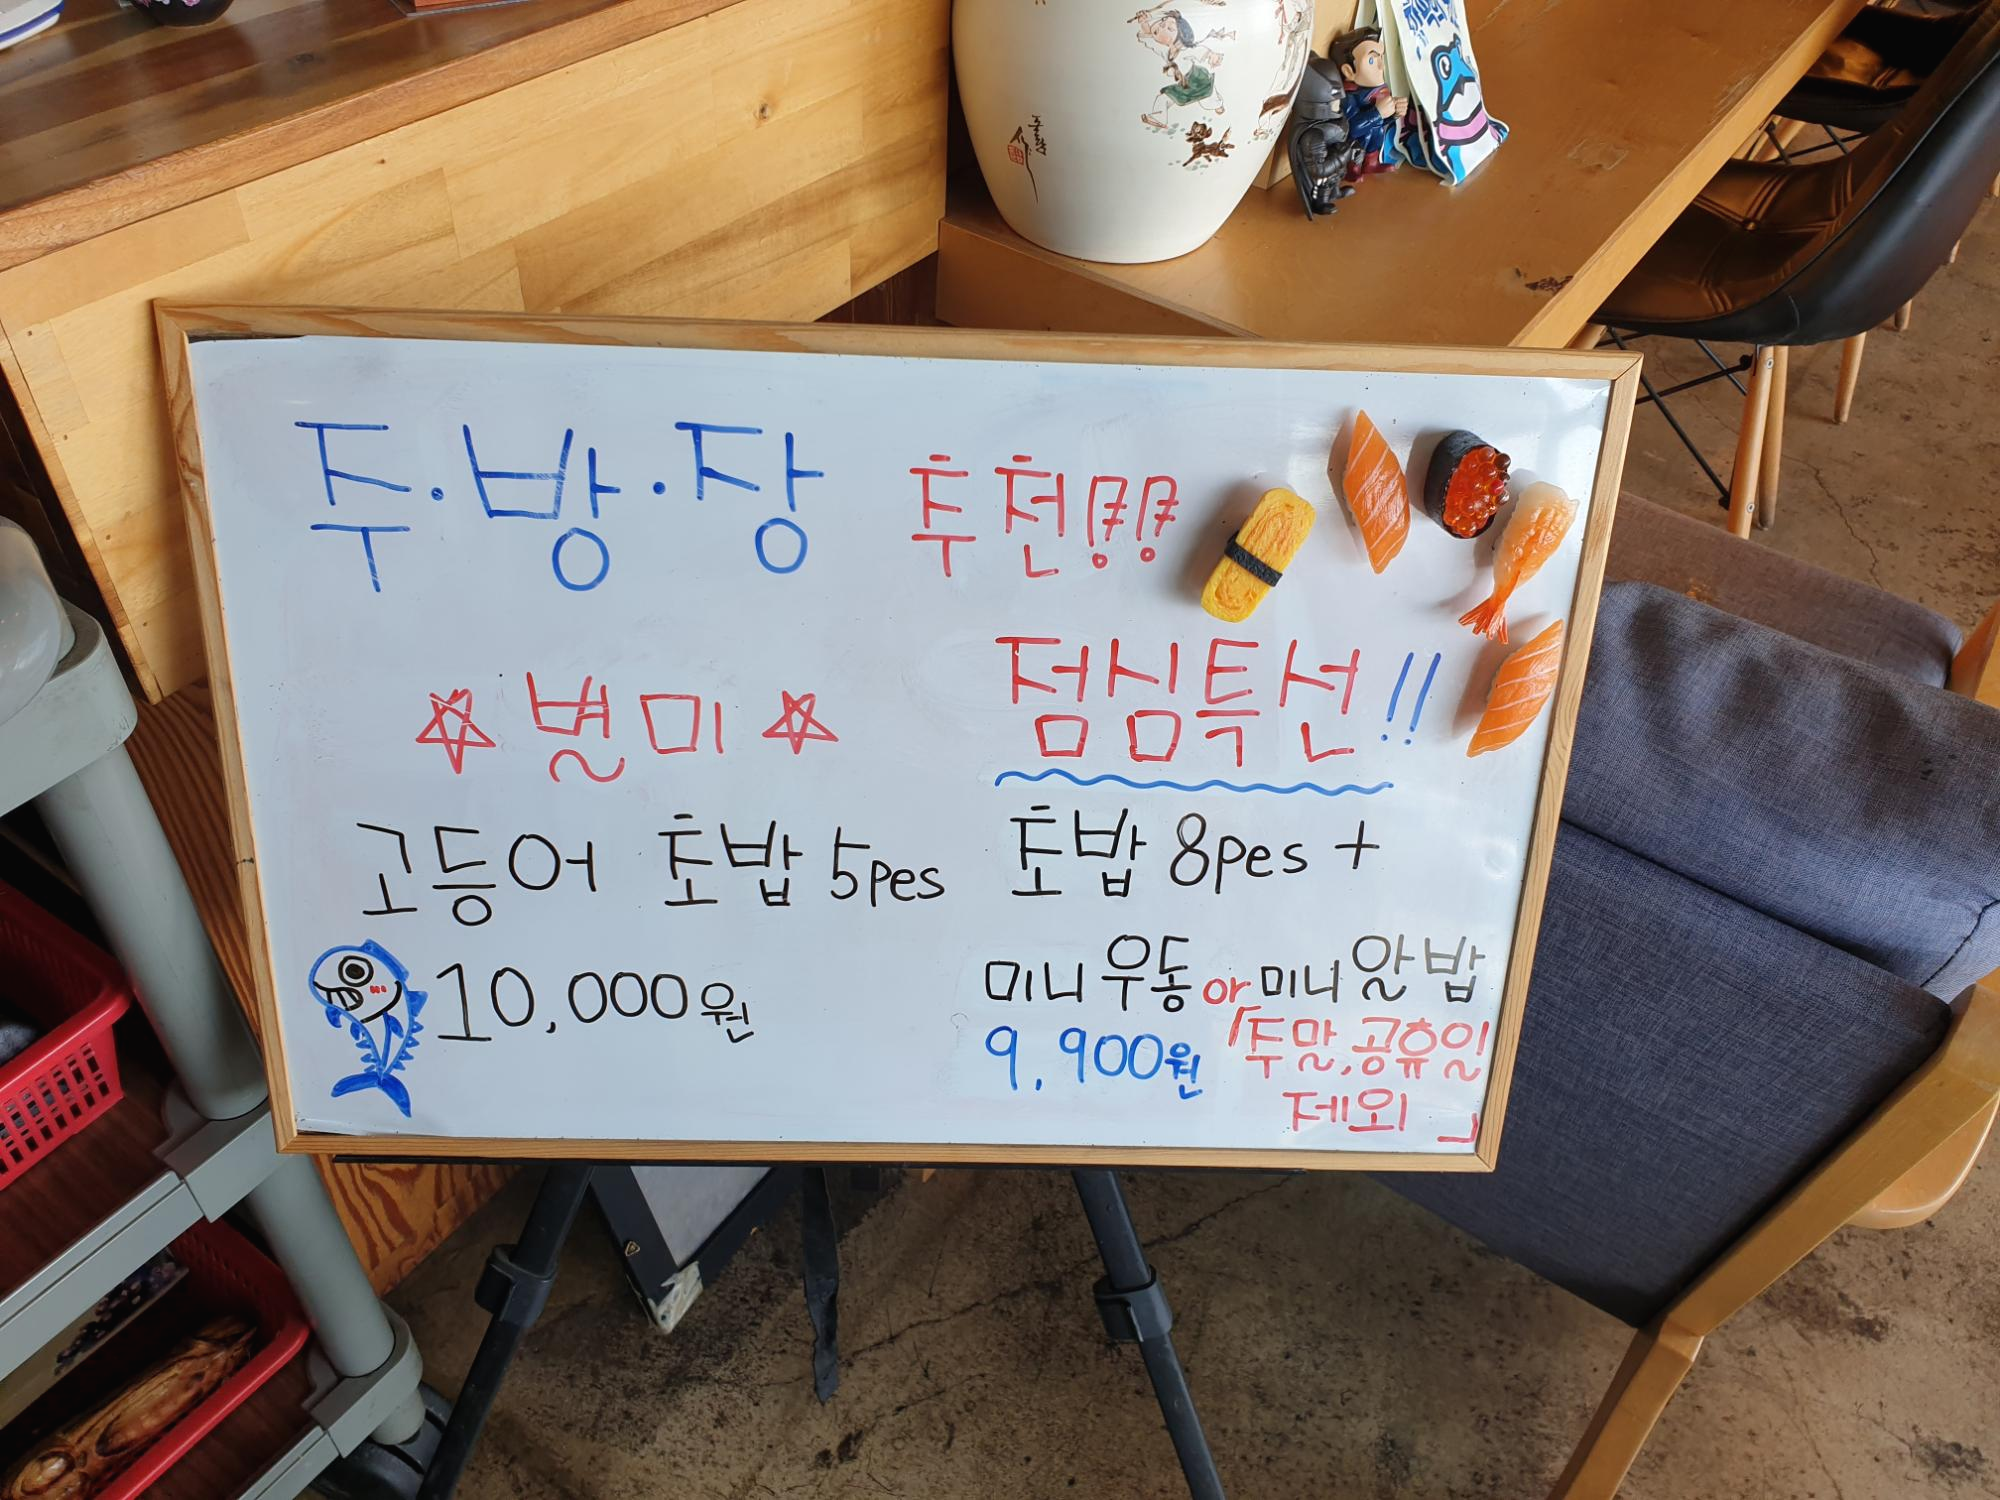 주·방·장 추천!!
☆별미☆
고등어 초밥 5pes
10,000원
점심특선!!
초밥 8pes +
미니우동 or 미니알밥
9,900원
「주말,공휴일
제외」